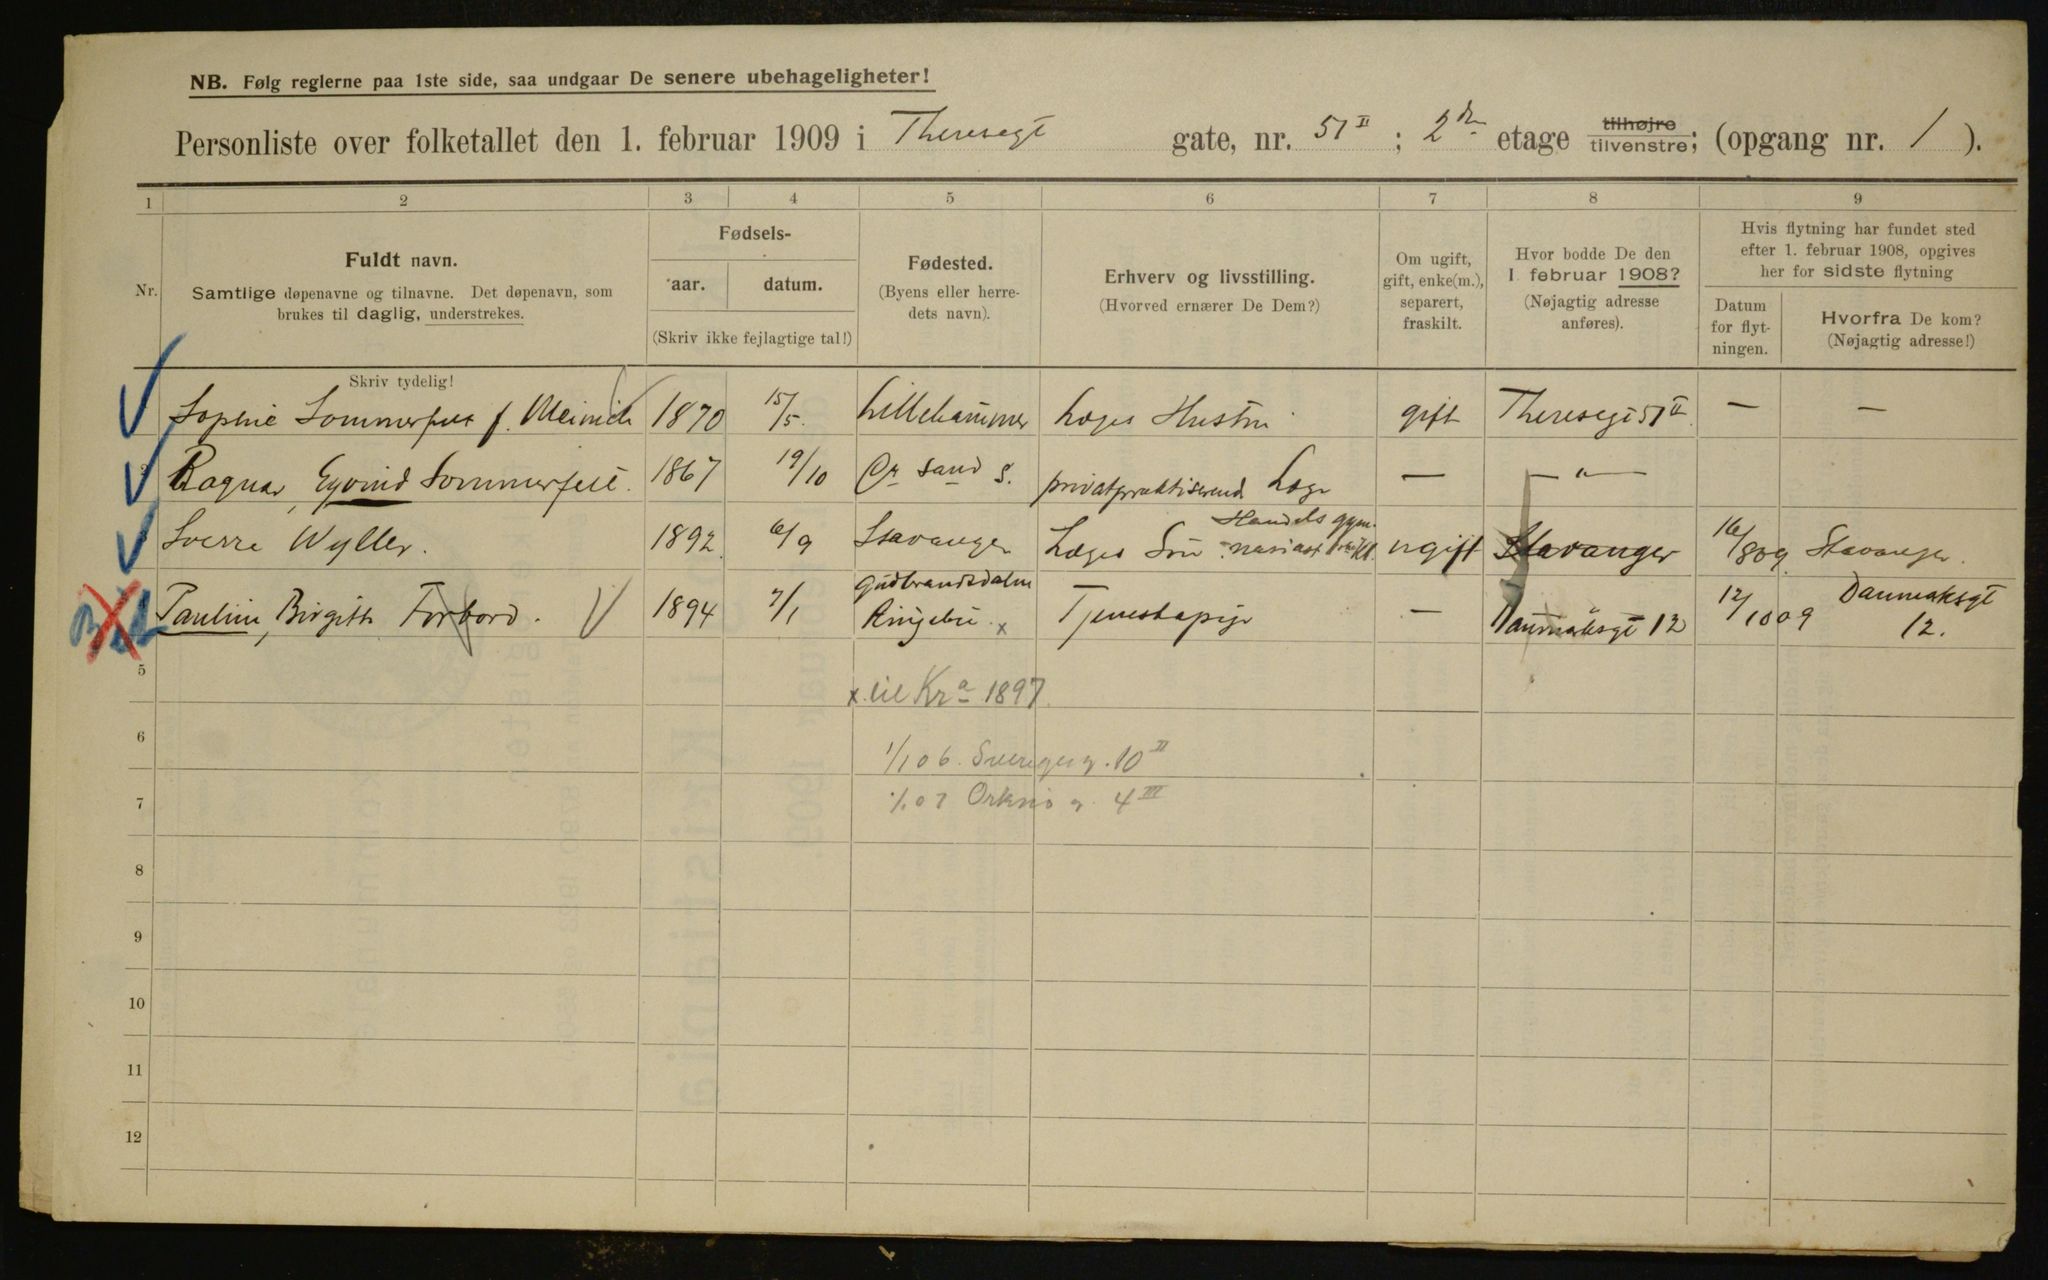 NB. Følg reglerne paa 1ste side, saa undgaar De senere ubehageligheter!
Personliste over folketallet den 1. februar 1909 i Theresegt gate, nr. 51 II ; 2den etage tilhøjre tilvenstre; (opgang nr. 1 ).
1 2 3 4 5 6 7 8 9
Nr.
Fuldt navn.
Samtlige døpenavne og tilnavne. Det døpenavn, som
brukes til daglig, understrekes.
Skriv tydelig!
Fødsels-
aar. datum.
(Skriv ikke fejlagtige tal!)
Fødested.
(Byens eller herre-
dets navn).
Erhverv og livsstilling.
(Hvorved ernærer De Dem?)
Om ugift,
gift, enke(m.),
separert,
fraskilt.
Hvor bodde De den
1. februar 1908?
(Nøjagtig adresse
anføres).
Hvis flytning har fundet sted
efter 1. februar 1908, opgives
her for sidste flytning
Datum
for flyt-
ningen.
Hvorfra De kom?
(Nøjagtig adresse!)
Sophie Sommerfelt f. Meinich 1870 15/5. Lillehammer Læges Hustru gift Theresegt 51 II — —
Ragnar, Eyvind Sommerfelt. 1867 19/10 Cr sand S. privatpraktiserende Læge — — " —
Sverre Wyller. 1892 6/9 Stavanger Læges Søn Handelsgym-
nasiast ugift Stavanger 16/8 09 Stavanger.
Pauline, Birgitte Forbord. 1894 7/1 Gudbrandsdalen
Ringebu x Tjenestepige — Danmarksgt 12 12/10 09 Danmaksgt
12.
5
x til Kra 1897.
6
1/1 06. Sverigesg. 10 II
7
1/1 07 Orknø g. 4 III
8
9
10
11
12